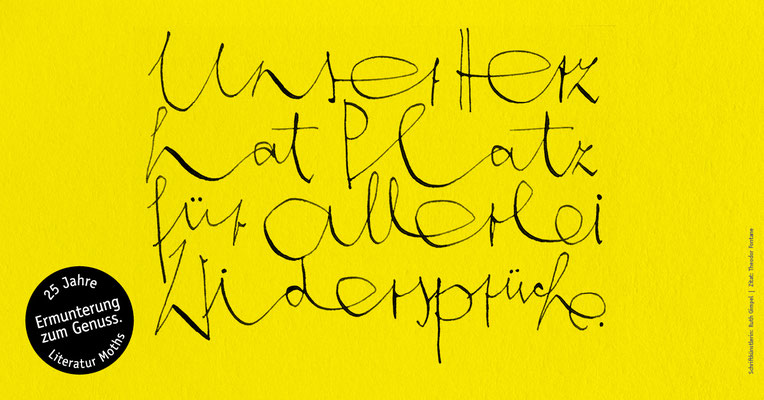 Unser Herz
hat Platz
für allerlei
Widersprüche.
25 Jahre
Ermunterung
zum Genuss.
Literatur Moths
Schriftkünstlerin: Ruth Gimpel | Zitat: Theodor Fontane